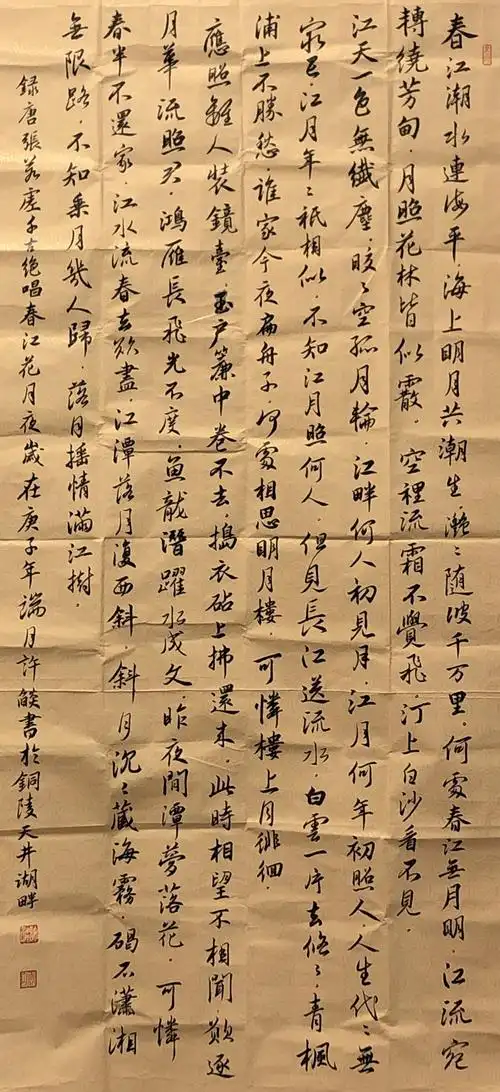 春江潮水連海平，海上明月共潮生，灧〻随波千万里，何處春江無月明，江流宛
轉繞芳甸，月照花林皆似霰，空裡流霜不覺飛，汀上白沙看不見，
江天一色無纖塵，皎〻空孤月輪，江畔何人初見月，江月何年初照人，人生代〻無
窮已，江月年〻祇相似，不知江月照何人，但見長江送流水，白雲一片去悠〻，青楓
浦上不勝愁，誰家今夜扁舟子，何處相思明月樓，可憐樓上月徘徊，
應照離人裝鏡臺，玉户簾中卷不去，搗衣砧上拂還来，此時相望不相聞，欺逐
月華流照君，鴻雁長飛光不度，魚龍潛躍水成文，昨夜閒潭夢落花，可憐
春半不還家，江水流春去欲盡，江潭落月復西斜，斜月沉〻藏海霧，碣石瀟湘
無限路，不知乘月幾人歸，落月摇情滿江樹，
録唐張若虚千古絶唱春江花月夜歲在庚子年端月許書於銅陵天井湖畔